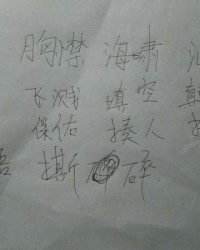 胸襟 海啸
飞溅 填空
保佑 揍人
撕 碎